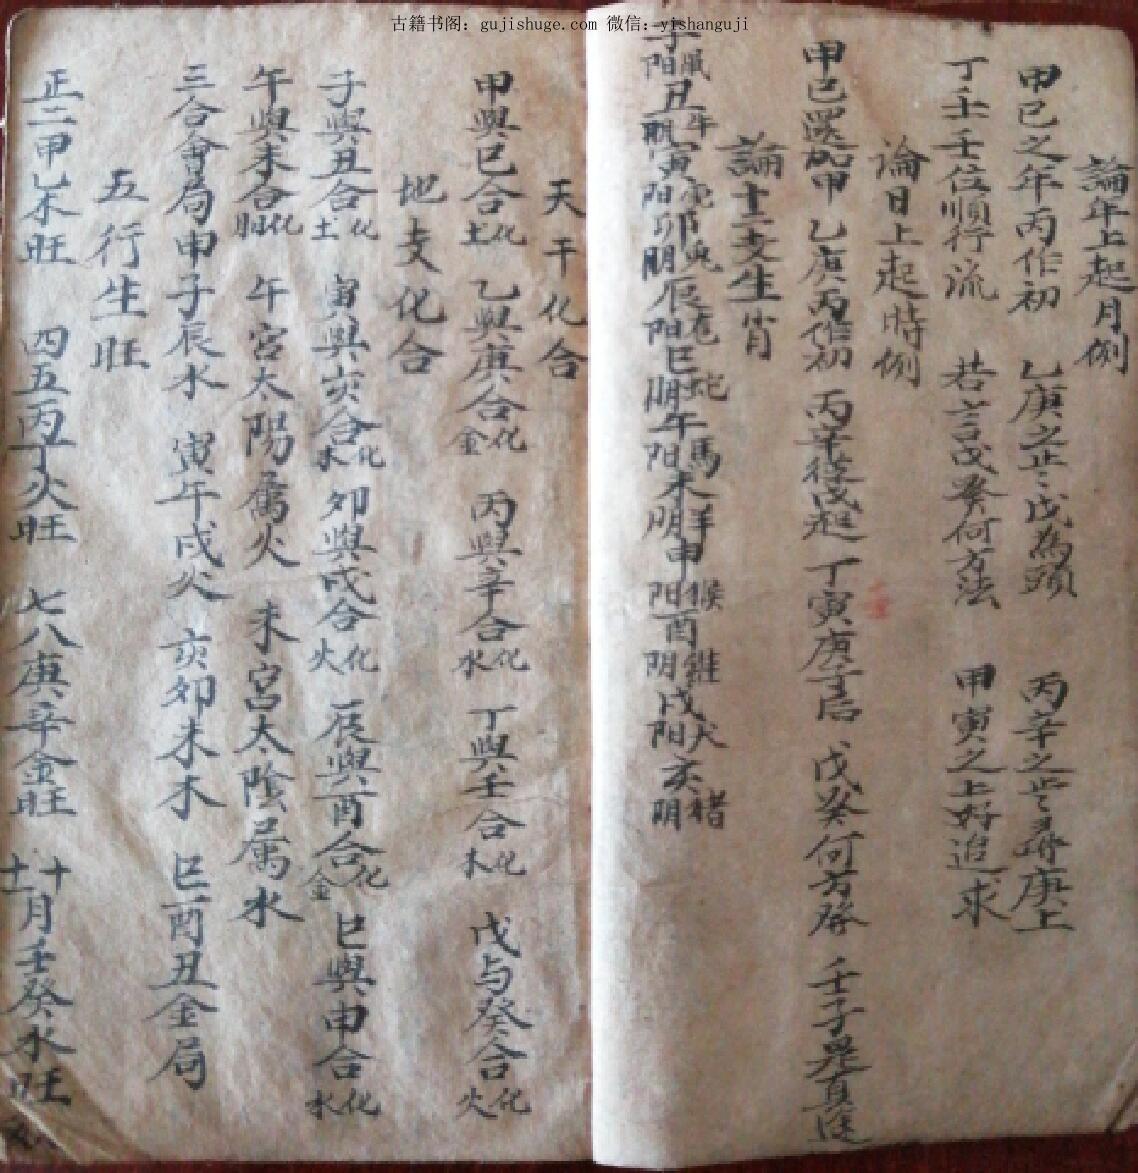 古籍书阁：gujishuge.com 微信：yishanguji
論年上起月例
甲已之年丙作初 乙庚之歩戊為頭 丙辛之歩尋庚上
丁壬壬位順行流 若言戊癸何方法 甲寅之上好追求
論日上起時例
甲已還加甲 乙庚丙作初 丙辛從戊起 丁寅庚子居 戊癸何方發 壬子是真途
論十二支生肖
子鼠阳丑牛阴寅虎阳卯兔阴辰龙阳巳蛇阴午馬阳未羊阴申猴阳酉雞阴戌犬阳亥猪阴
天干化合
甲與巳合化土 乙與庚合化金 丙與辛合化水 丁與壬合化木 戊与癸合化火
地支化合
子與丑合化土 寅與亥合化水 卯與戌合化火 辰與酉合化金 巳與申合化水
午與未合化 午宮太陽属火 未宮太陰属水
三合會局申子辰水 寅午戌火 亥卯未木 巳酉丑金局
五行生旺
正二甲乙木旺 四五丙丁火旺 七八庚辛金旺 十十一月壬癸水旺